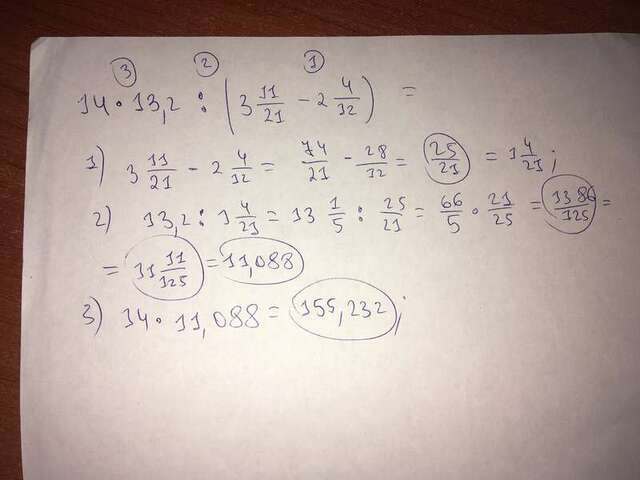 ③ ② ①
14 · 13,2 : (3 11/21 - 2 4/12) =
1) 3 11/21 - 2 4/12 = 74/21 - 28/12 = 25/21 = 1 4/21;
2) 13,2 : 1 4/21 = 13 1/5 : 25/21 = 66/5 · 21/25 = 1386/125 =
= 11 11/125 = 11,088
3) 14 · 11,088 = 155,232;